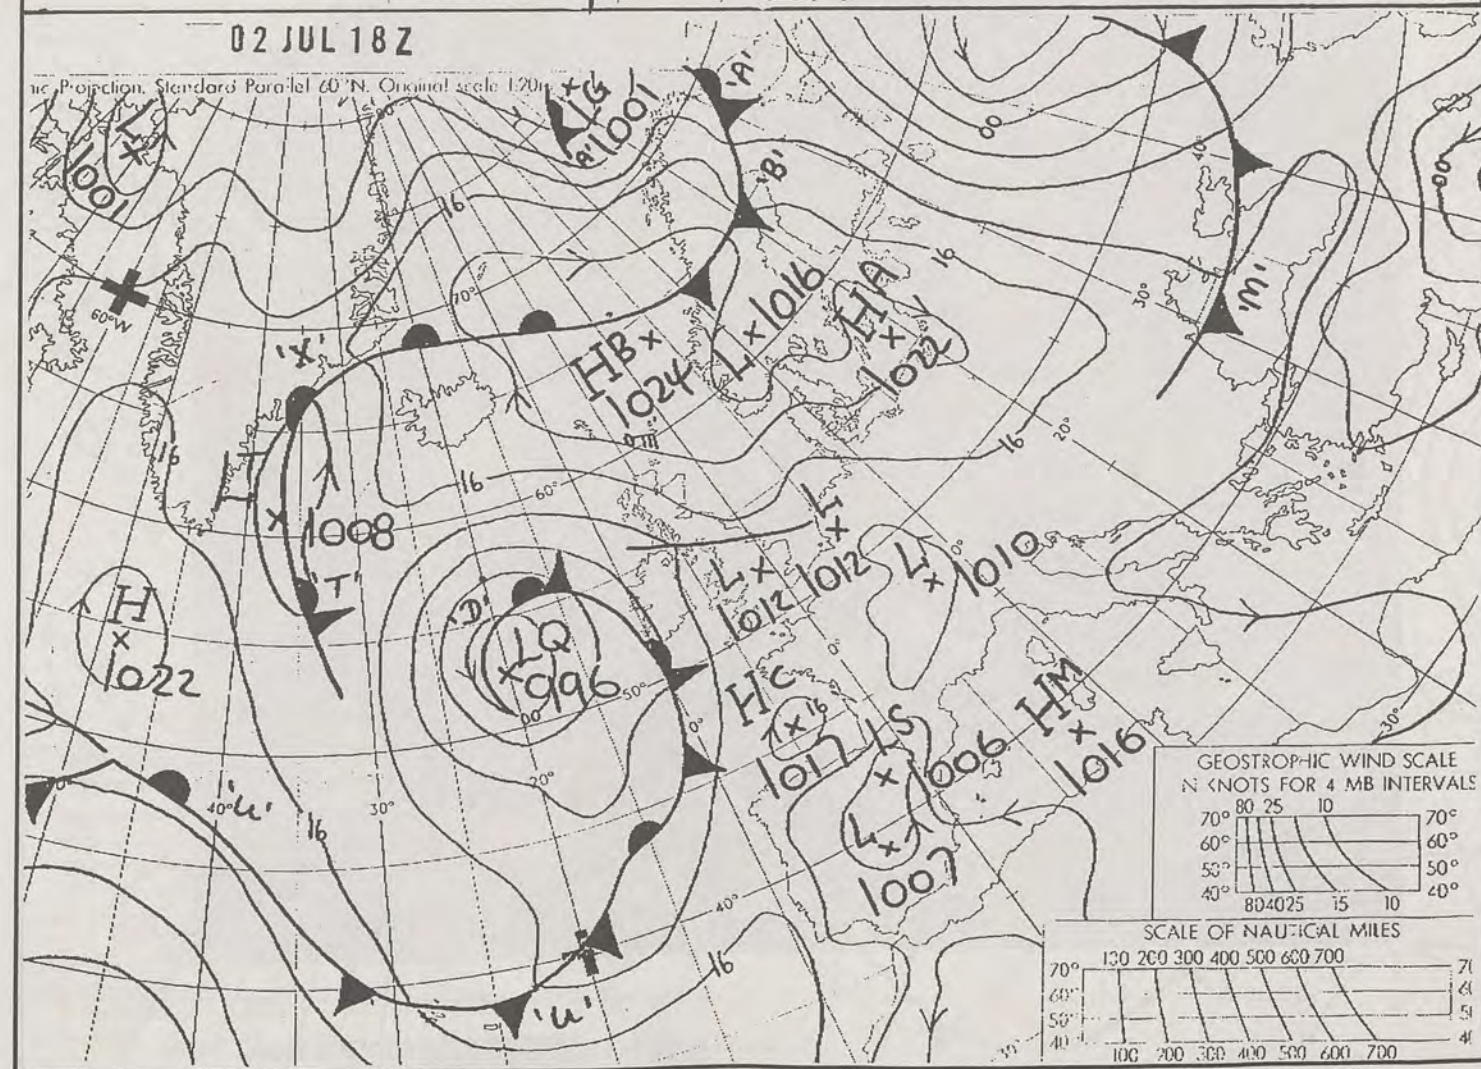 02 JUL 18Z
Projection, Standard Parallel 60°N. Original scale 1:20m
L
1001
LG
1001
'A'
'A'
'B'
00
40°
00
16
70°
60°W
'X'
HB
1024
L
1016
HA
1022
16
30°
'W'
20°
16
16
16
60°
H
1008
'T'
H
1022
'D'
LQ
996
00
50°
L
1012
L
1012
L
1010
0°
0°
0°
HC
16
1017
LS
1006
HM
1016
L
1007
30°
40°
'U'
30°
20°
16
40°
16
'U'
GEOSTROPHIC WIND SCALE
IN KNOTS FOR 4 MB INTERVALS
80 25 10
70° 70°
60° 60°
50° 50°
40° 40°
80 40 25 15 10
SCALE OF NAUTICAL MILES
100 200 300 400 500 600 700
70°
60°
50°
40°
100 200 300 400 500 600 700